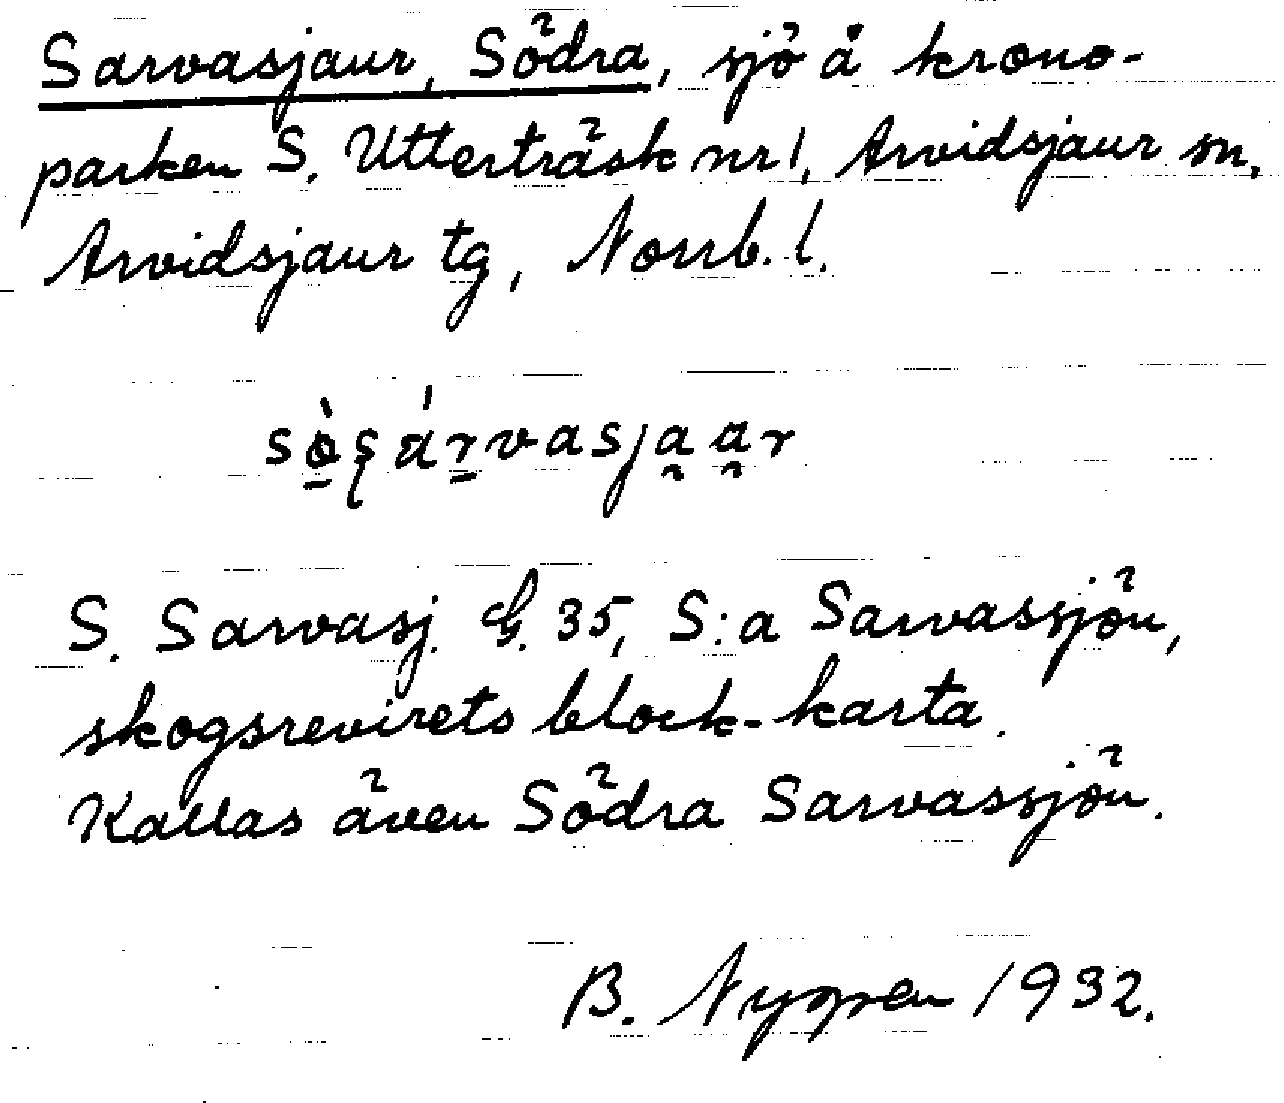 Sarvasjaur, Södra, sjö å krono-
parken S. Utterträsk nr 1, Arvidsjaur sn,
Arvidsjaur tg, Norrb. l.
sò̱ʂárvasja̰a̰r
S. Sarvasj. G. 35, S:a Sarvassjön,
skogsrevirets block-karta.
Kallas även Södra Sarvassjön.
B. Nygren 1932.